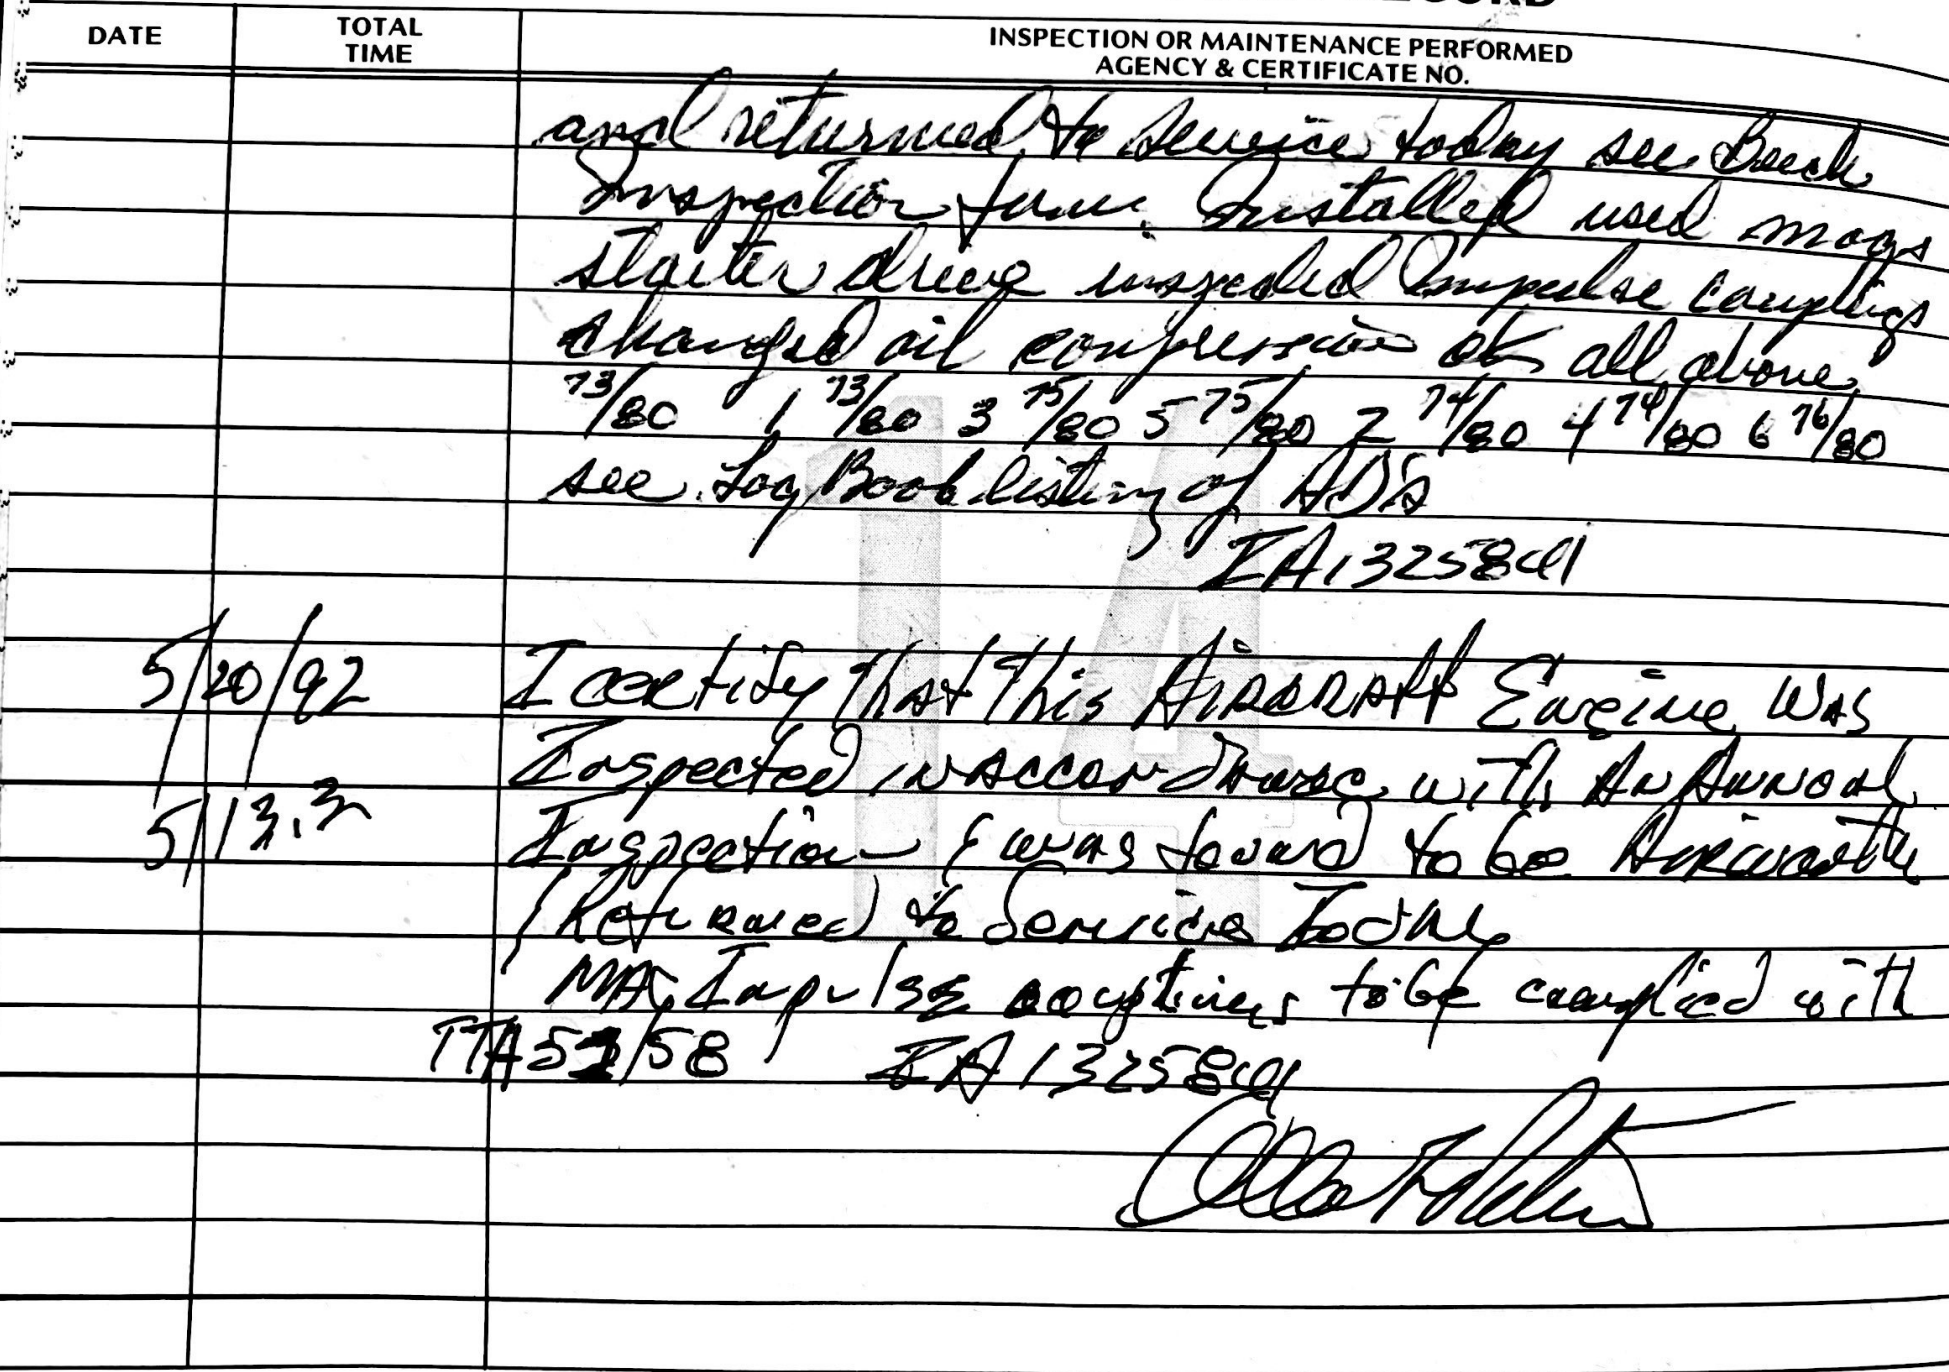 RECORD
DATE
TOTAL TIME
INSPECTION OR MAINTENANCE PERFORMED
AGENCY & CERTIFICATE NO.
and returned to service today see Beech
Inspection form. Installed used mags
starter drive inspected Impulse couplings
changed oil compression ok all above
73/80 1 73/80 3 75/80 5 75/80 2 74/80 4 74/80 6 76/80
see Log Book listing of AD's
IA 1325841
14
5/20/92 I certify that this Aircraft Engine was
Inspected in accordance with An Annual
5113.3 Inspection & was found to be Airworthy
Returned to Service Today
MAG Impulse couplings to be complied with
TTA 51/58 IA 1325841